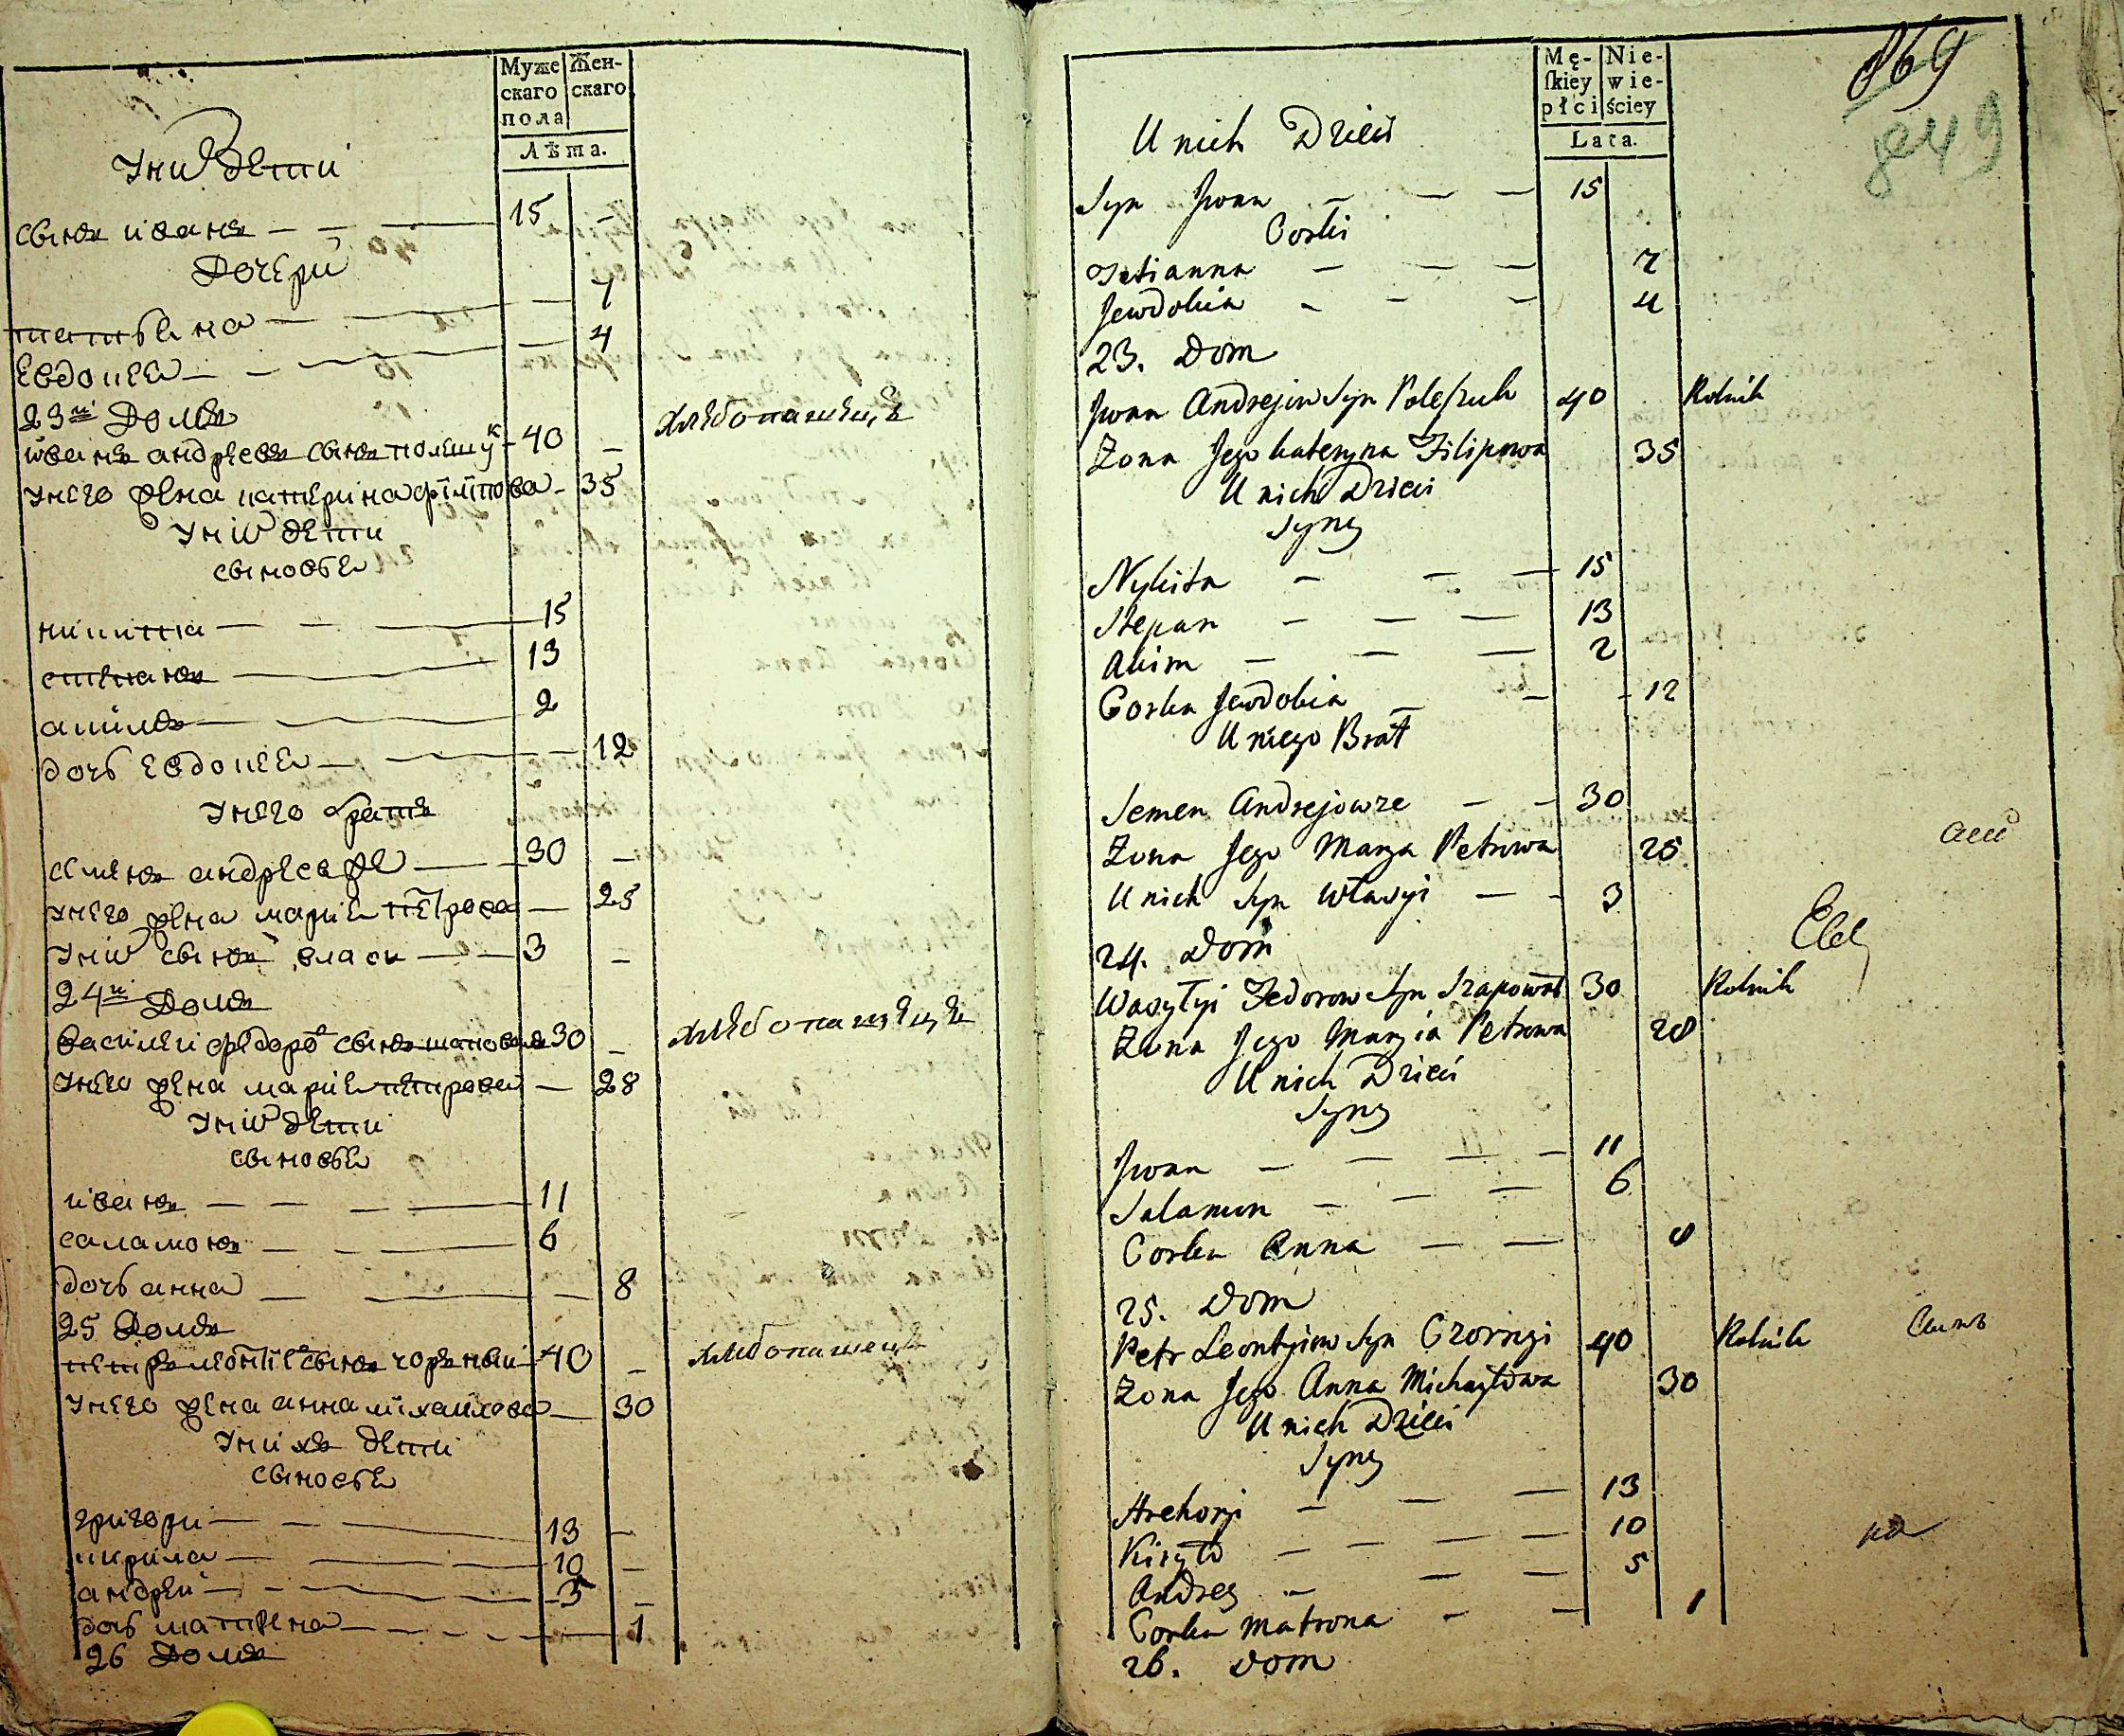 Муже
скаго
пола
Жен-
скаго
Лѣта.
У них дети
сынъ иванъ — — — 15 -
Дочери
татьяна — — — 7
Евдокея — — — 4
23й Домъ
иванъ андреевъ сынъ полешук - 40 - хлѣбопашецъ
у него жена катерина филипова - 35
У них дети
сыновья
никита — — — 15
степанъ — 13
акимъ — — 2
дочь евдокея — — 12
У него братъ
семенъ андреев же — 30 —
у него жена мария петрова — 25
у них сынъ власи — 3 —
24й Домъ
василеи федоров сынъ шаповалъ 30 - хлѣбопашецъ
у него жена мария петрова — 28
У них дети
сыновья
иванъ — — — 11
саламонъ — — 6
дочь анна — — 8
25 Домъ
петръ леонтиев сынъ чорный 40 - хлѣбопашецъ
у него жена анна михаилова — 30
У нихъ дети
сыновья
григори — — 13 —
кирила — — 10 —
андрей — — 5 —
дочь матрена — — 1
26 Домъ
Mę-
ſkiey
płci
Nie-
wie-
ściey
Lata.
869
849
U nich Dzieci
Syn Jwan — — — 15
Corki
Tetianna — — — 7
Jewdokia - - - 4
23. Dom
Jwan Andrejew Syn Poleszuk 40 Rolnik
Zona Jego Kateryna Filipowa 35
U nich Dzieci
Syny
Nykita — — — 15
Stepan — — — 13
Akim — — — 2
Corka Jewdokia — — - 12
U niego Brat
Semen Andrejow ze — — 30
Zona Jego Marya Petrowa 25
U nich Syn Własyi — - 3
24. Dom
Wasyłyi Fedorow Syn Szapował 30 Rolnik
Zona Jego Maryia Petrowa 28
U nich Dzieci
Syny
Jwan — — — - 11
Salamon — — — 6
Corka Anna — — 8
25. Dom
Petr Leontyiow Syn Czornyi 40 Rolnik
Zona Jego Anna Michayłowa 30
U nich Dzieci
Syny
Hrehoryi — — — 13
Kiryło — — — — 10
Andrey — — — 5
Corka Matrona - — 1
26. Dom